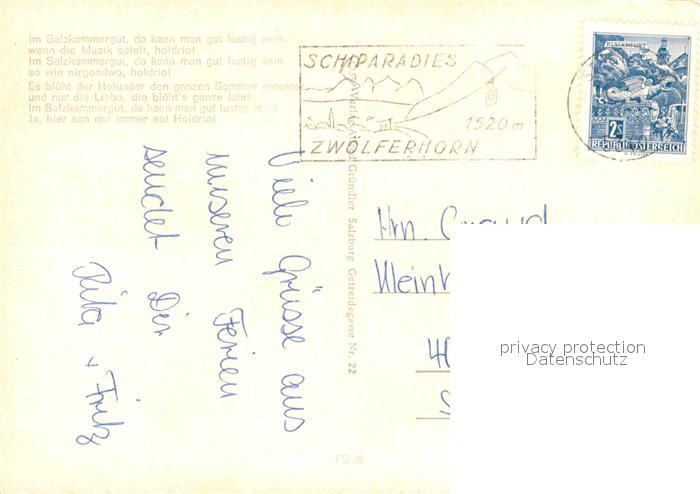 Im Salzkammergut, da kann man gut lustig sein,
wenn die Musik spielt, holdrio!
Im Salzkammergut, da kann man gut lustig sein,
so wie nirgendwo, holdrio!
Es blüht der Holunder den ganzen Sommer mitunter
und nur die Liebe, die blüht's ganze Jahr!
Im Salzkammergut, da kann man gut lustig sein!
Ja, hier san mir immer so! Holdrio!
SCHIPARADIES
1520 m
ZWÖLFERHORN
KLAGENFURT
2S
REPUBLIK ÖSTERREICH
Viele Grüsse aus
unseren Ferien
sendet Dir
Rita + Fritz
Gründler Salzburg Getreidegasse Nr. 22
Hrn.
privacy protection
Datenschutz